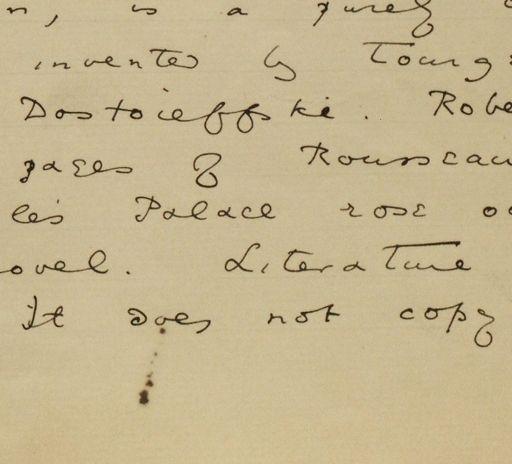 n, is a purely
invented by Tourg
Dostoieffski. Robe
pages of Rousseau
le's Palace rose o
ovel. Literature
It does not copy